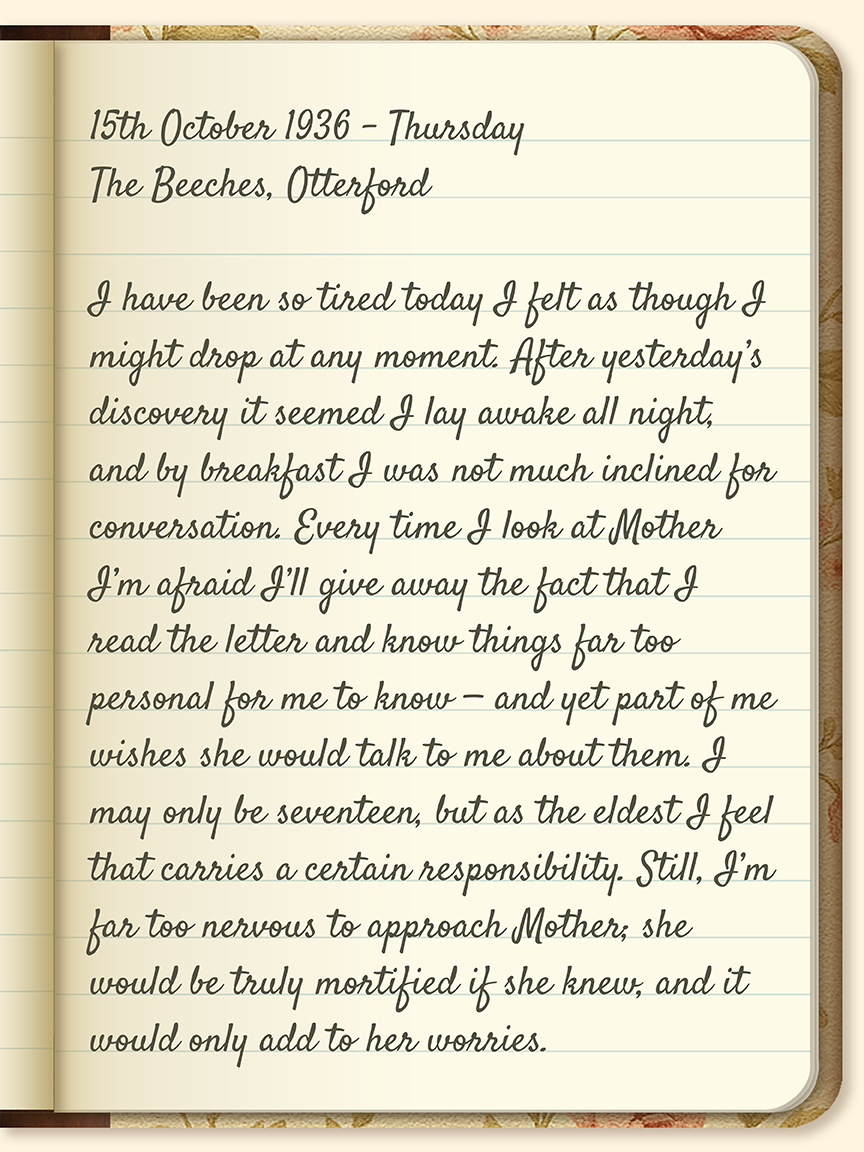 15th October 1936 – Thursday
The Beeches, Otterford
I have been so tired today I felt as though I
might drop at any moment. After yesterday’s
discovery it seemed I lay awake all night,
and by breakfast I was not much inclined for
conversation. Every time I look at Mother
I’m afraid I’ll give away the fact that I
read the letter and know things far too
personal for me to know – and yet part of me
wishes she would talk to me about them. I
may only be seventeen, but as the eldest I feel
that carries a certain responsibility. Still, I’m
far too nervous to approach Mother; she
would be truly mortified if she knew, and it
would only add to her worries.